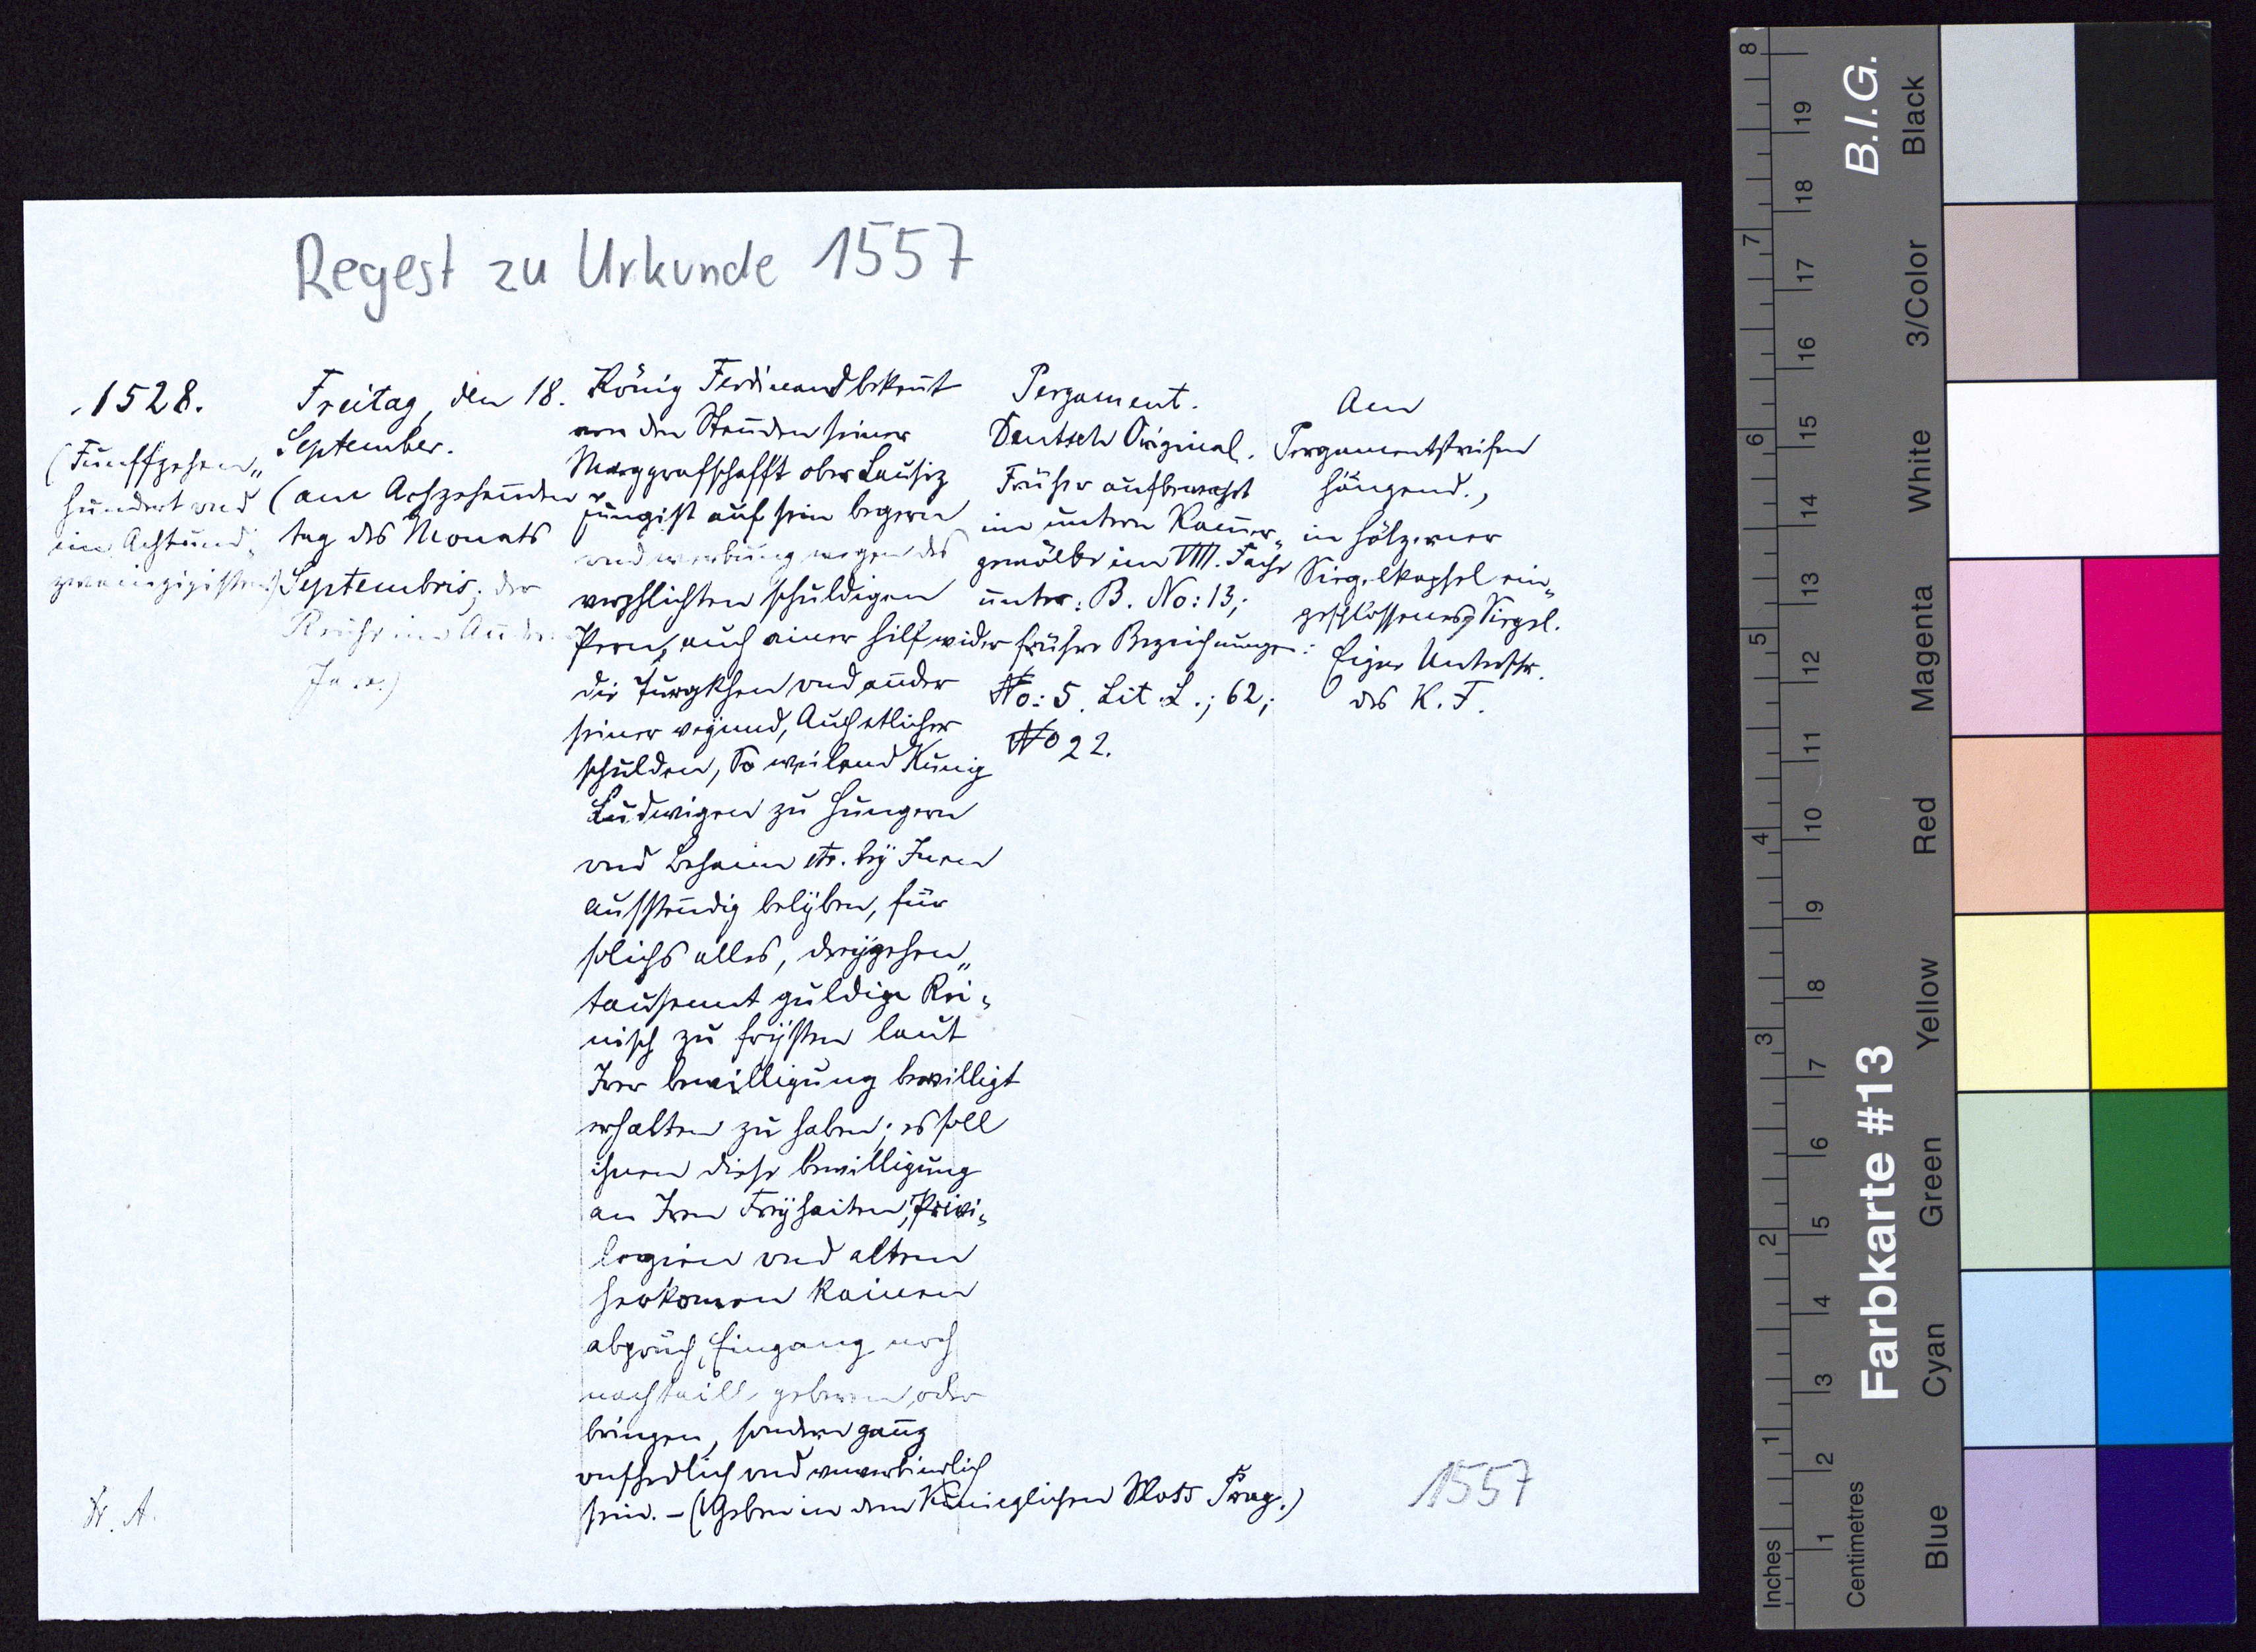 Regest zu Urkunde 1557
1528.
(Funffzehen„
hundert und
im Achtund„
zwainzigisten)
Freitag, den 18.
September.
(am Achzehenden
tag des Monats
Septembris, der
Reiche im Andern
Ja..)
König Ferdinand bekent
von den Stenden seiner
Marggrafschafft ober Lausiz
jungist auf sein begern
und werbung wegen des
verphlichten schuldigen
Pern, auch ainer hilf wider
die Turgkhen und ander
seiner veiynd, Auch etlicher
schulden, So weilend Kunig
Ludwigen zu Hungern
vnd Behaim etc. bey Inen
ausstendig belyben, für
solichs alles, dreyzehen„
tausennt guldige Rei„
nisch zu frysten laut
Irer bewilligung bewilligt
erhalten zu haben; es soll
ihnen diese bewilligung
an Iren Freyhaiten, Privi„
legien vnd alten
herkomen kainen
abpruch, Eingang noch
nachtaill geberen, oder
bringen, sondern ganz
vnschedlich vnd unverbindlich
sein. – (Geben in dem Künigclichen Sloss Prag.)
Pergament.
Deutsch Original.
Früher aufbewahrt
im untern Kamer„
gewölbe im VIII. Fache
unter: B. No: 13;
frühere Bezeichnungen:
No: 5. Lit. L.; 62;
No 22.
Am
Pergamentstreifen
hängend.,
in hölzerner
Siegelkapsel ein„
geschlossenes Siegel.
Eigne Unterschr.
des K. F.
Dr. A.
1557
8
7
6
5
4
3
2
1
Inches
19
18
17
16
15
14
13
12
11
10
9
8
7
6
5
4
3
2
1
Centimetres
B.I.G.
Farbkarte #13
Black
3/Color
White
Magenta
Red
Yellow
Green
Cyan
Blue